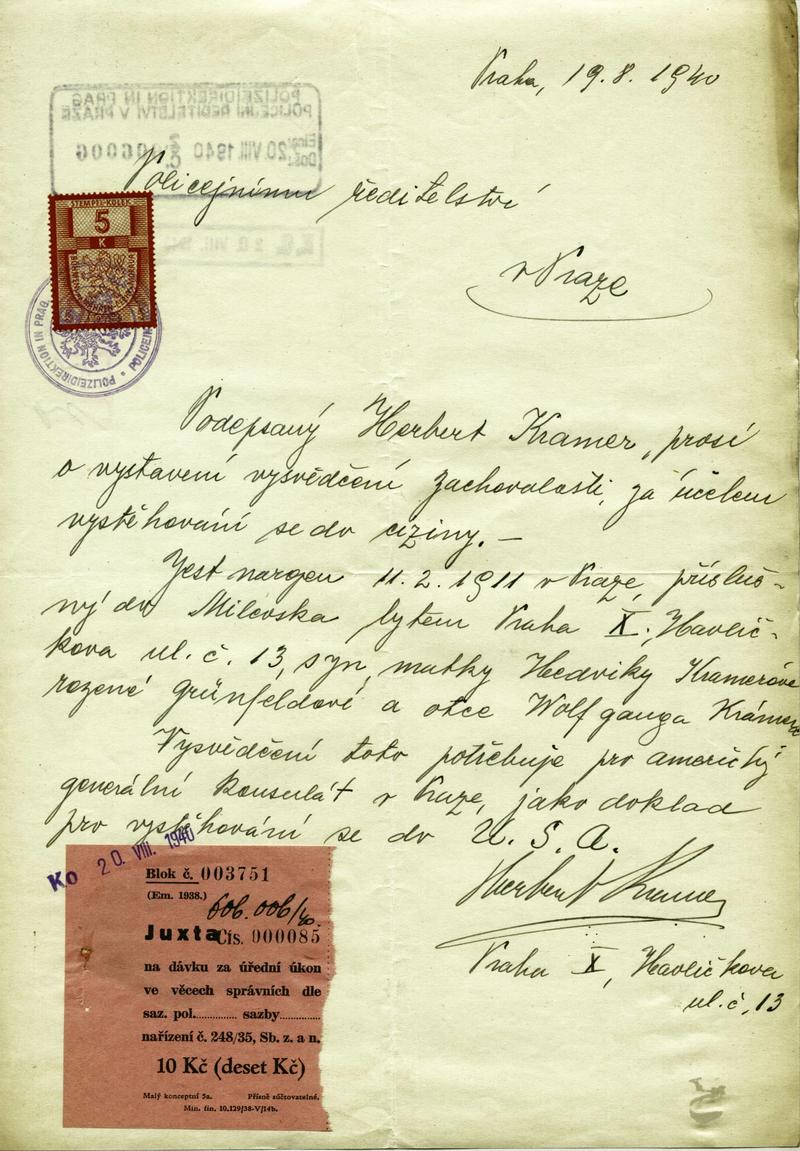 Praha, 19. 8. 1940
POLIZEIDIREKTION IN PRAG
POLICEJNÍ ŘEDITELSTVÍ V PRAZE
20 VIII. 1940
Policejnímu ředitelství
v Praze
STEMPEL-KOLEK
5
K
POLIZEIDIREKTION IN PRAG
Podepsaný Herbert Kramer, prosí
o vystavení vysvědčení zachovalosti, za účelem
vystěhování se do ciziny. —
Jest narozen 11. 2. 1911 v Praze, přísluš-
ný do Milevska bytem Praha X., Havlíč-
kova ul. č. 13, syn, matky Hedviky Kramerové
rozené Grünfeldové a otce Wolfganga Krámera
Vysvědčení toto potřebuje pro americký
generální konsulát v Praze, jako doklad
pro vystěhování se do U. S. A.
Herbert Kramer
Praha X, Havlíčkova
ul. č. 13
Ko 20. VIII. 1940
Blok č. 003751
(Em. 1938.)
606.006/40
Juxta Čís. 000085
na dávku za úřední úkon
ve věcech správních dle
saz. pol............ sazby............
nařízení č. 248/35, Sb. z. a n.
10 Kč (deset Kč)
Malý konceptní 5a. Přísně súčtovatelné.
Min. fin. 10.129/38-V/14b.